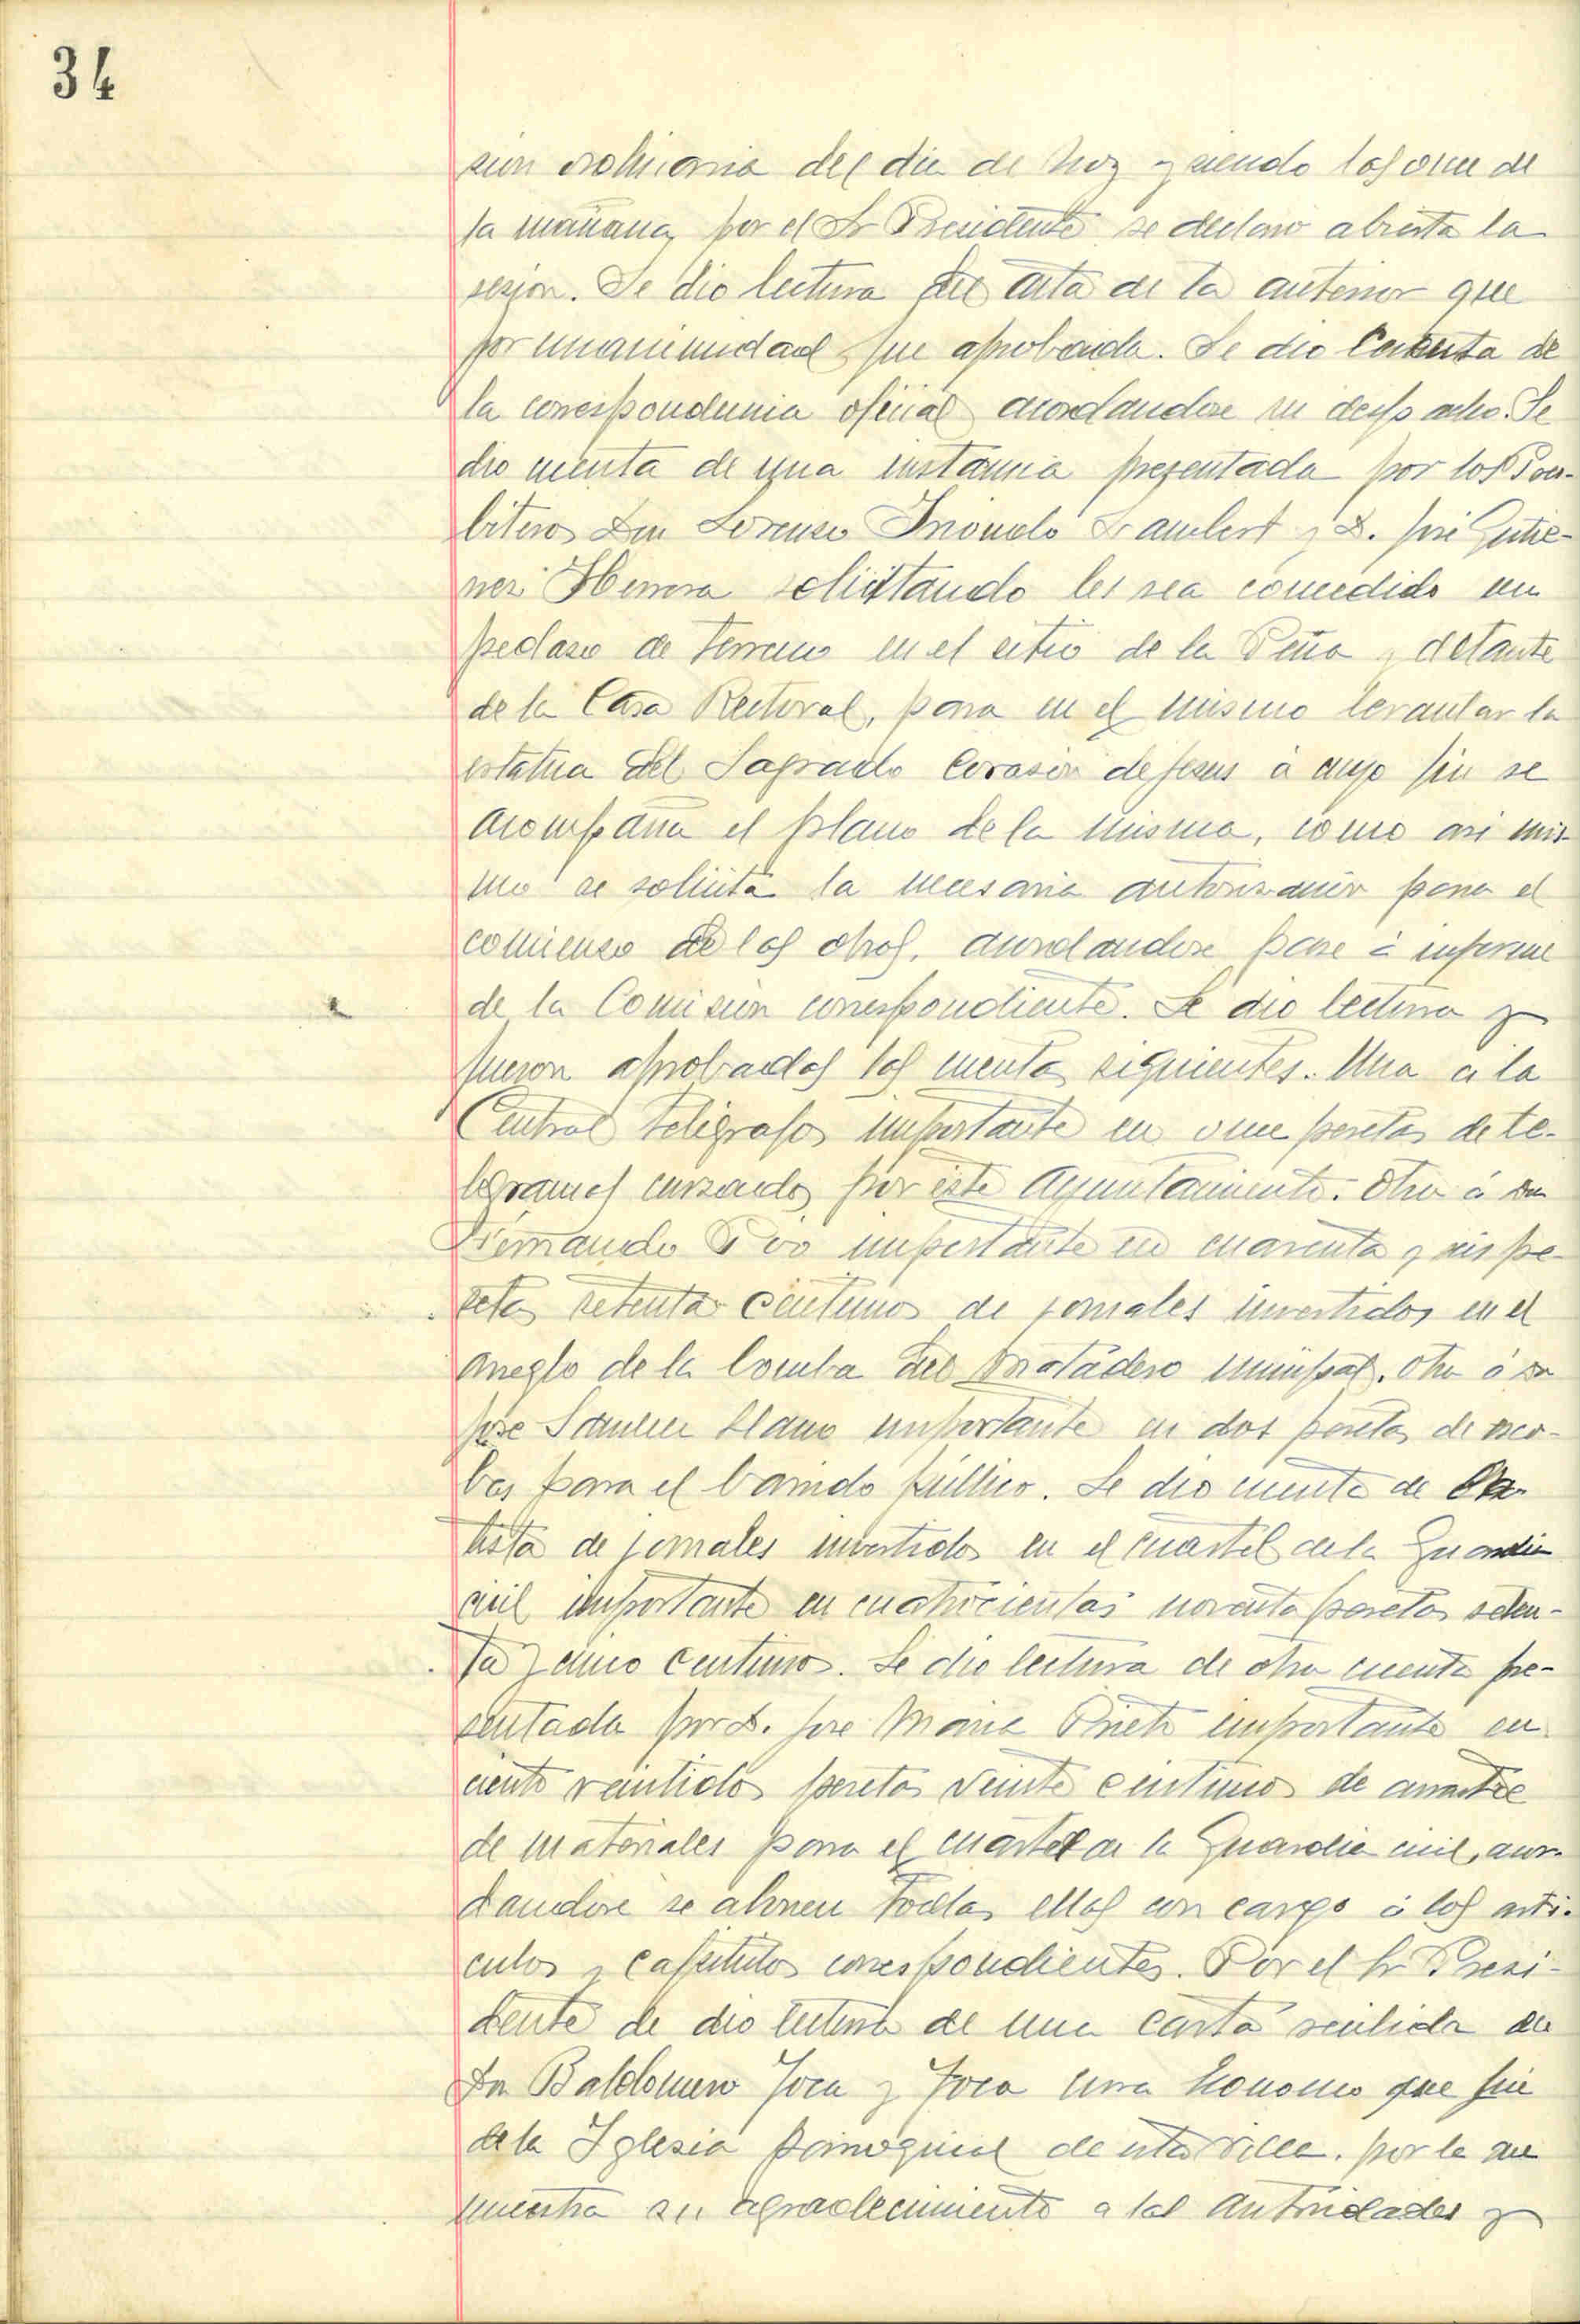 34
sion ordinaria del dia de hoy y siendo las once de
la mañana, por el Sr Presidente se declaro abierta la
sesion. Se dio lectura del acta de la anterior que
por unanimidad fue aprobada. Se dio cuenta de
la correspondencia oficial acordandose su despacho. Se
dio cuenta de una instancia presentada por los Pres-
biteros Don Lorenzo Lambert y D. José Gutie-
rrez Herrera solicitando les sea concedido un
pedazo de terreno en el sitio de la Peña y delante
de la Casa Rectoral, para en el mismo levantar la
estatua del Sagrado Corazón de Jesus á cuyo fin se
acompaña el plano de la misma, como asi mis-
mo se solicita la necesaria autorización para el
comienzo de las obras, acordandose pase á informe
de la Comisión correspondiente. Se dio lectura y
fueron aprobadas las cuentas siguientes. Una á la
Central Telégrafos importante en once pesetas de te-
legramas cursados por este Ayuntamiento. Otra á Dn
Fernando importante en cuarenta y seis pe-
setas setenta céntimos de jornales invertidos en el
arreglo de la bomba del matadero municipal. Otra á Dn
José Llano importante en dos pesetas de esco-
bas para el barrido público. Se dio cuenta de la
lista de jornales invertidos en el cuartel de la Guardia
civil importante en cuatrocientas noventa pesetas seten-
ta y cinco centimos. Se dio lectura de otra cuenta pre-
sentada por D. José Maria Prieto importante en
ciento veintidos pesetas veinte centimos de arrastre
de materiales para el cuartel de la Guardia civil, acor-
dandose se abonen todas ellas con cargo á los arti-
culos y capitulos correspondientes. Por el Sr Presi-
dente de dio lectura de una carta recibida de
Dn Baldomero y Cura Economo que fué
de la Iglesia parroquial de esta villa, por la que
muestra su agradecimiento a las Autoridades y